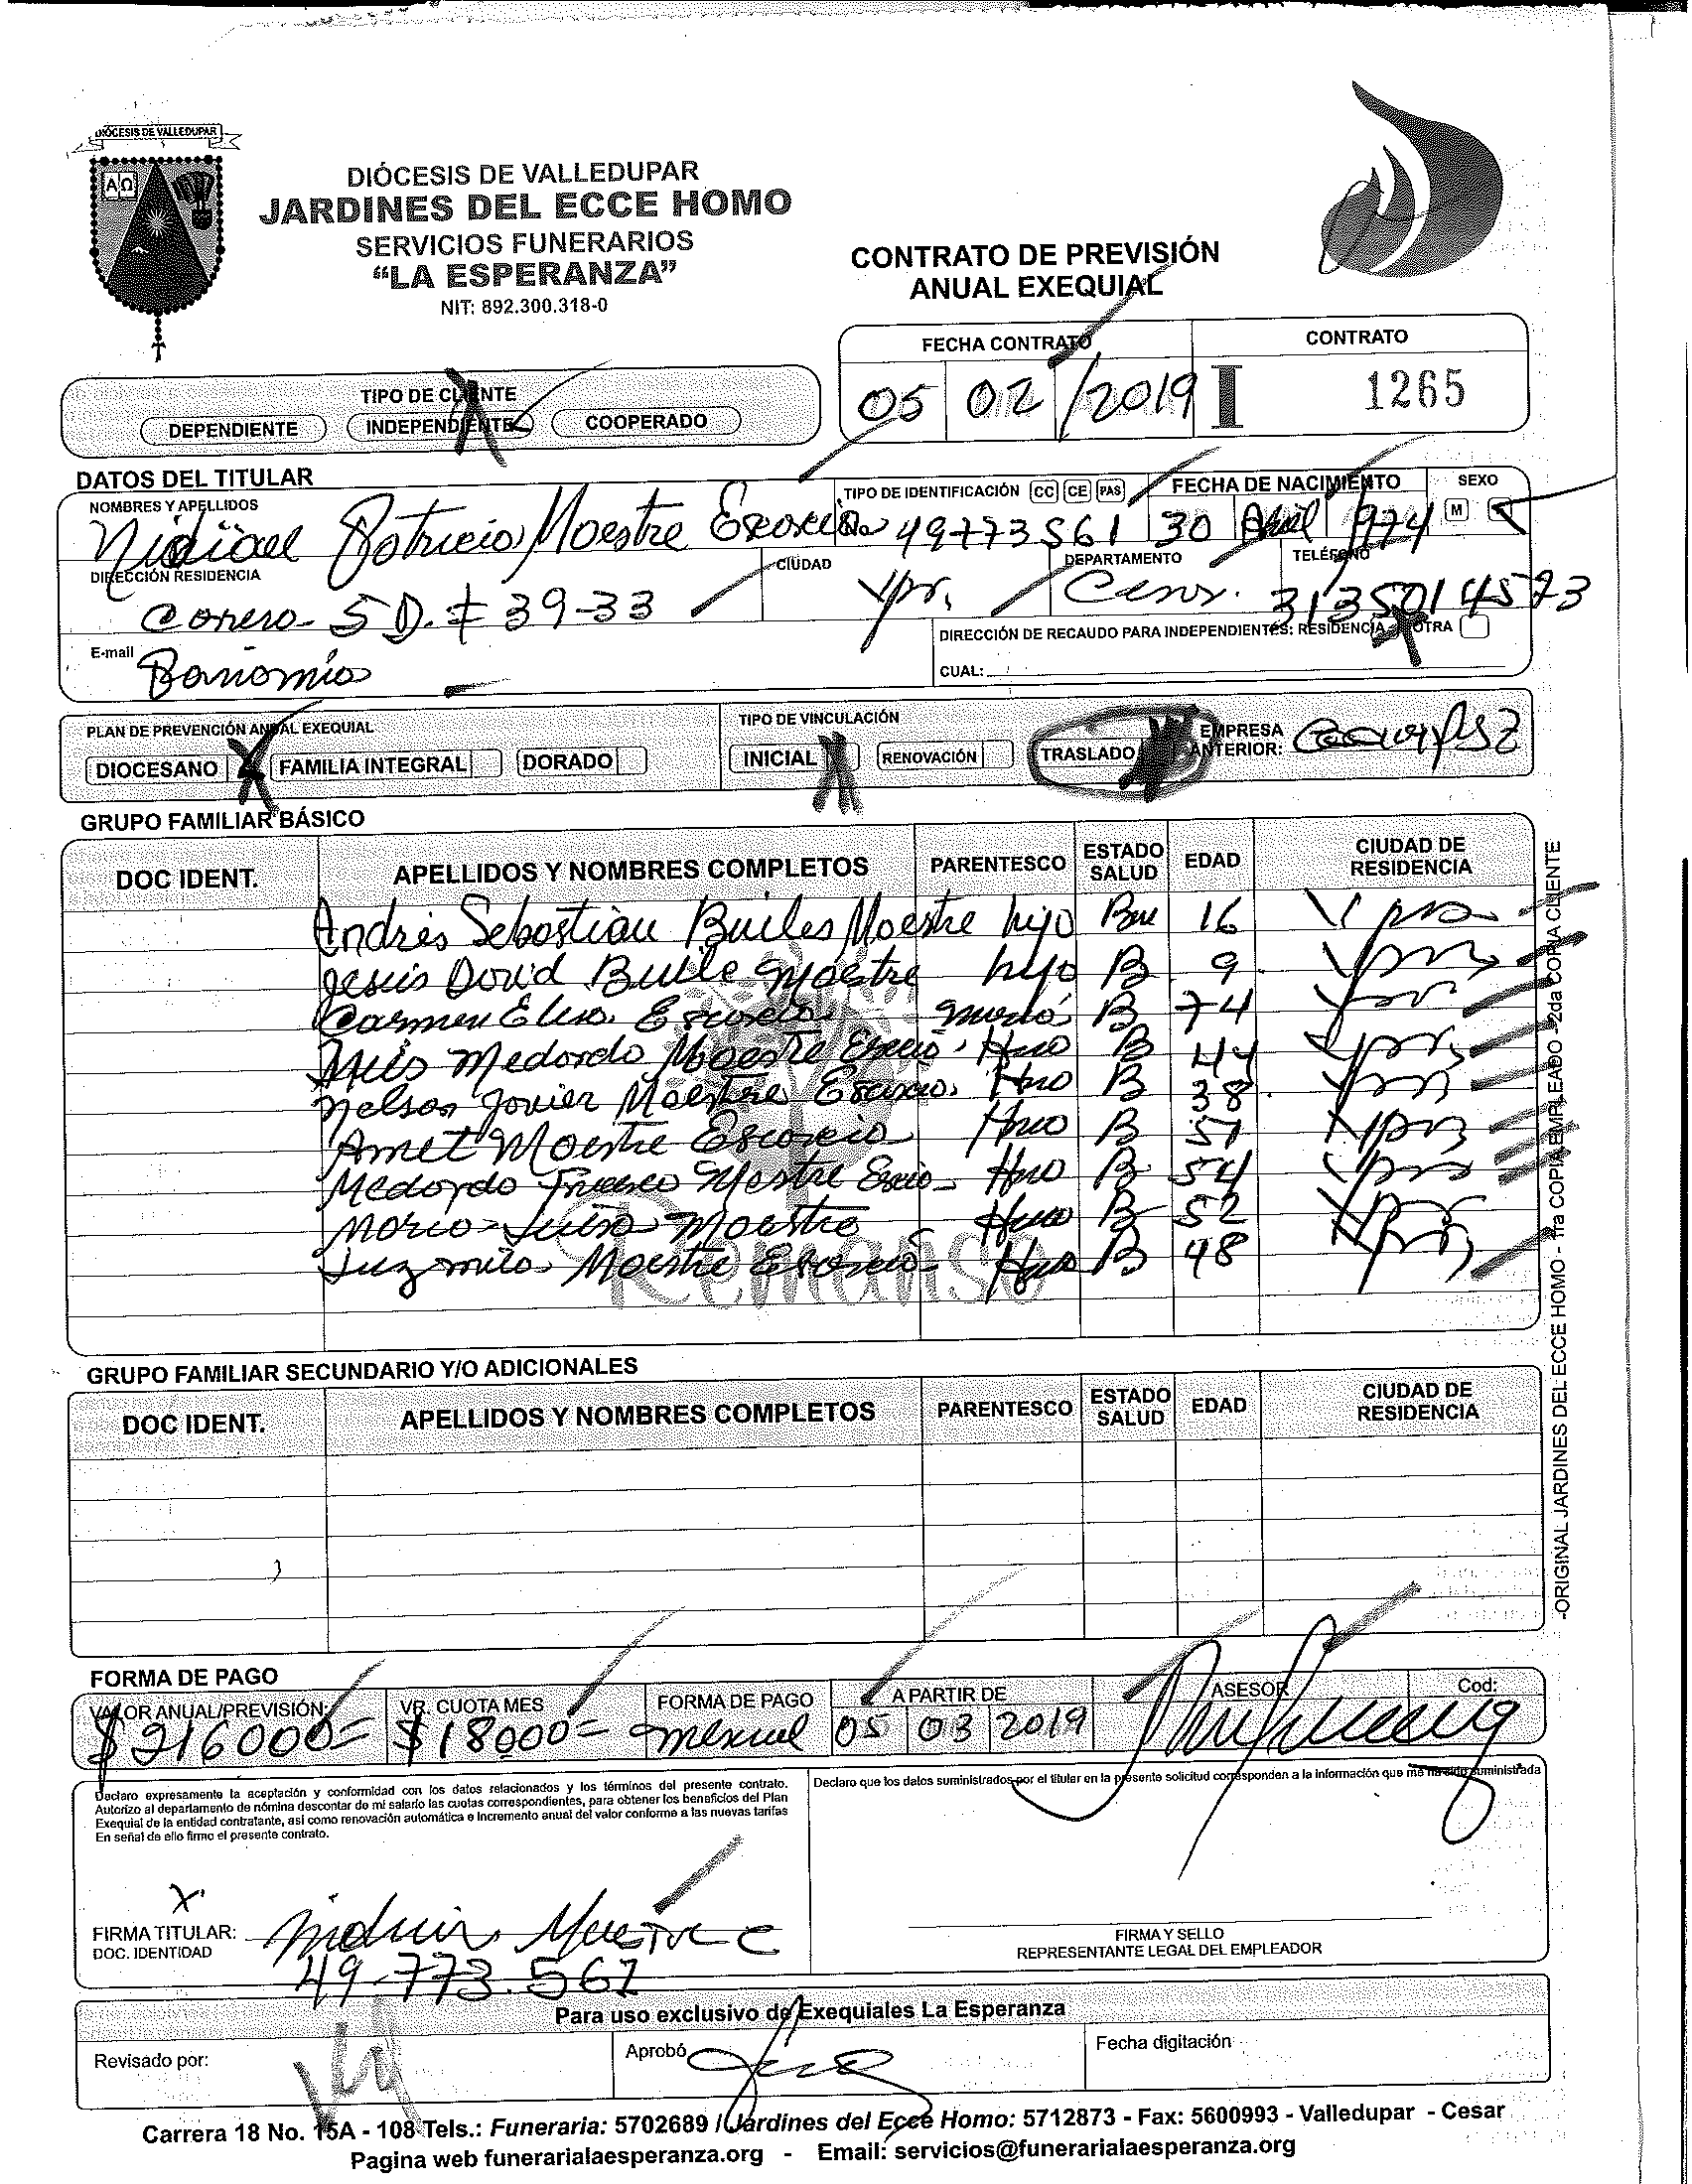 DIÓCESIS DE VALLEDUPAR
ΑΩ
DIÓCESIS DE VALLEDUPAR
JARDINES DEL ECCE HOMO
SERVICIOS FUNERARIOS
“LA ESPERANZA”
NIT: 892.300.318-0
CONTRATO DE PREVISIÓN
ANUAL EXEQUIAL
FECHA CONTRATO CONTRATO
05 02 /2019 I 1265
TIPO DE CLIENTE
DEPENDIENTE INDEPENDIENTE X COOPERADO
DATOS DEL TITULAR
NOMBRES Y APELLIDOS TIPO DE IDENTIFICACIÓN CC CE PAS FECHA DE NACIMIENTO SEXO
Patricia Maestre No 49773561 30 Abril 1974 M
DIRECCIÓN RESIDENCIA CIUDAD DEPARTAMENTO TELÉFONO
5 D. # 39-33 Vpr. Cesar. 3135014573
DIRECCIÓN DE RECAUDO PARA INDEPENDIENTES: RESIDENCIA X OTRA
E-mail
CUAL:
PLAN DE PREVENCIÓN ANUAL EXEQUIAL TIPO DE VINCULACIÓN
DIOCESANO X FAMILIA INTEGRAL DORADO INICIAL X RENOVACIÓN TRASLADO EMPRESA ANTERIOR:
GRUPO FAMILIAR BÁSICO
DOC IDENT. APELLIDOS Y NOMBRES COMPLETOS PARENTESCO ESTADO SALUD EDAD CIUDAD DE RESIDENCIA
Andrés Sebastián Builes Maestre hijo 16 Vpr
Jesús David Builes Maestre hijo B 9 Vpr
Carmen Elisa B 74 Vpr
Luis Medardo Maestre Hno B 44 Vpr
Nelson Javier Maestre Hno B 38 Vpr
Amet Maestre Hno B 51 Vpr
Medardo Hno B 54 Vpr
Maestre B 52 Vpr
Luz mila Maestre B 48 Vpr
Remanso
GRUPO FAMILIAR SECUNDARIO Y/O ADICIONALES
DOC IDENT. APELLIDOS Y NOMBRES COMPLETOS PARENTESCO ESTADO SALUD EDAD CIUDAD DE RESIDENCIA
FORMA DE PAGO
VALOR ANUAL/PREVISIÓN: VR. CUOTA MES FORMA DE PAGO A PARTIR DE ASESOR Cod:
$216000= $18000= mensual 05 03 2019
Declaro expresamente la aceptación y conformidad con los datos relacionados y los términos del presente contrato.
Autorizo al departamento de nómina descontar de mi salario las cuotas correspondientes, para obtener los beneficios del Plan
Exequial de la entidad contratante, así como renovación automática e incremento anual del valor conforme a las nuevas tarifas
En señal de ello firmo el presente contrato.
Declaro que los datos suministrados por el titular en la presente solicitud corresponden a la información que me ha sido suministrada
X
FIRMA TITULAR:
DOC. IDENTIDAD
49.773.561
FIRMA Y SELLO
REPRESENTANTE LEGAL DEL EMPLEADOR
Para uso exclusivo de Exequiales La Esperanza
Revisado por: Aprobó Fecha digitación
Carrera 18 No. 15A - 108 Tels.: Funeraria: 5702689 / Jardines del Ecce Homo: 5712873 - Fax: 5600993 - Valledupar - Cesar
Pagina web funerarialaesperanza.org - Email: servicios@funerarialaesperanza.org
-ORIGINAL JARDINES DEL ECCE HOMO - 1ra COPIA EMPLEADO -2da COPIA CLIENTE